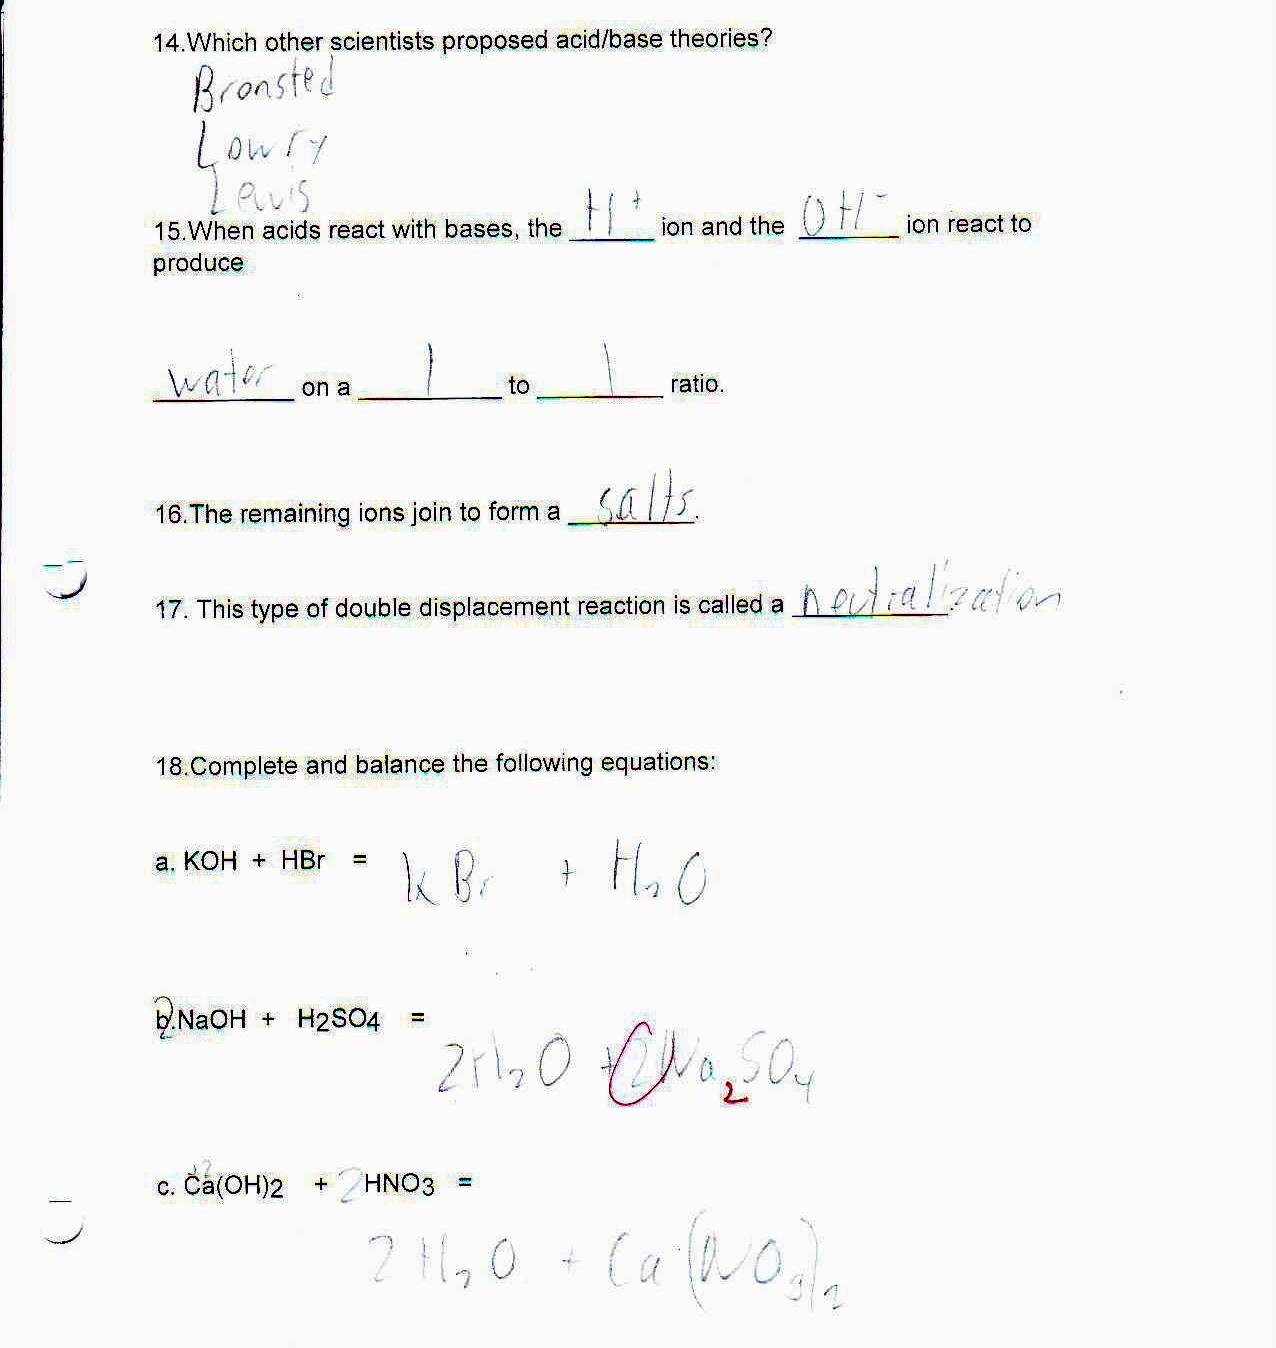 14.Which other scientists proposed acid/base theories?
Bronsted
Lowry
Lewis
15.When acids react with bases, the H+ ion and the OH- ion react to
produce
water on a 1 to 1 ratio.
16.The remaining ions join to form a salts.
17. This type of double displacement reaction is called a neutralization
18.Complete and balance the following equations:
a. KOH + HBr = KBr + H2O
b.2NaOH + H2SO4 =
2H2O + 2Na2SO4
c. Ca(OH)2 + 2HNO3 =
2H2O + Ca(NO3)2